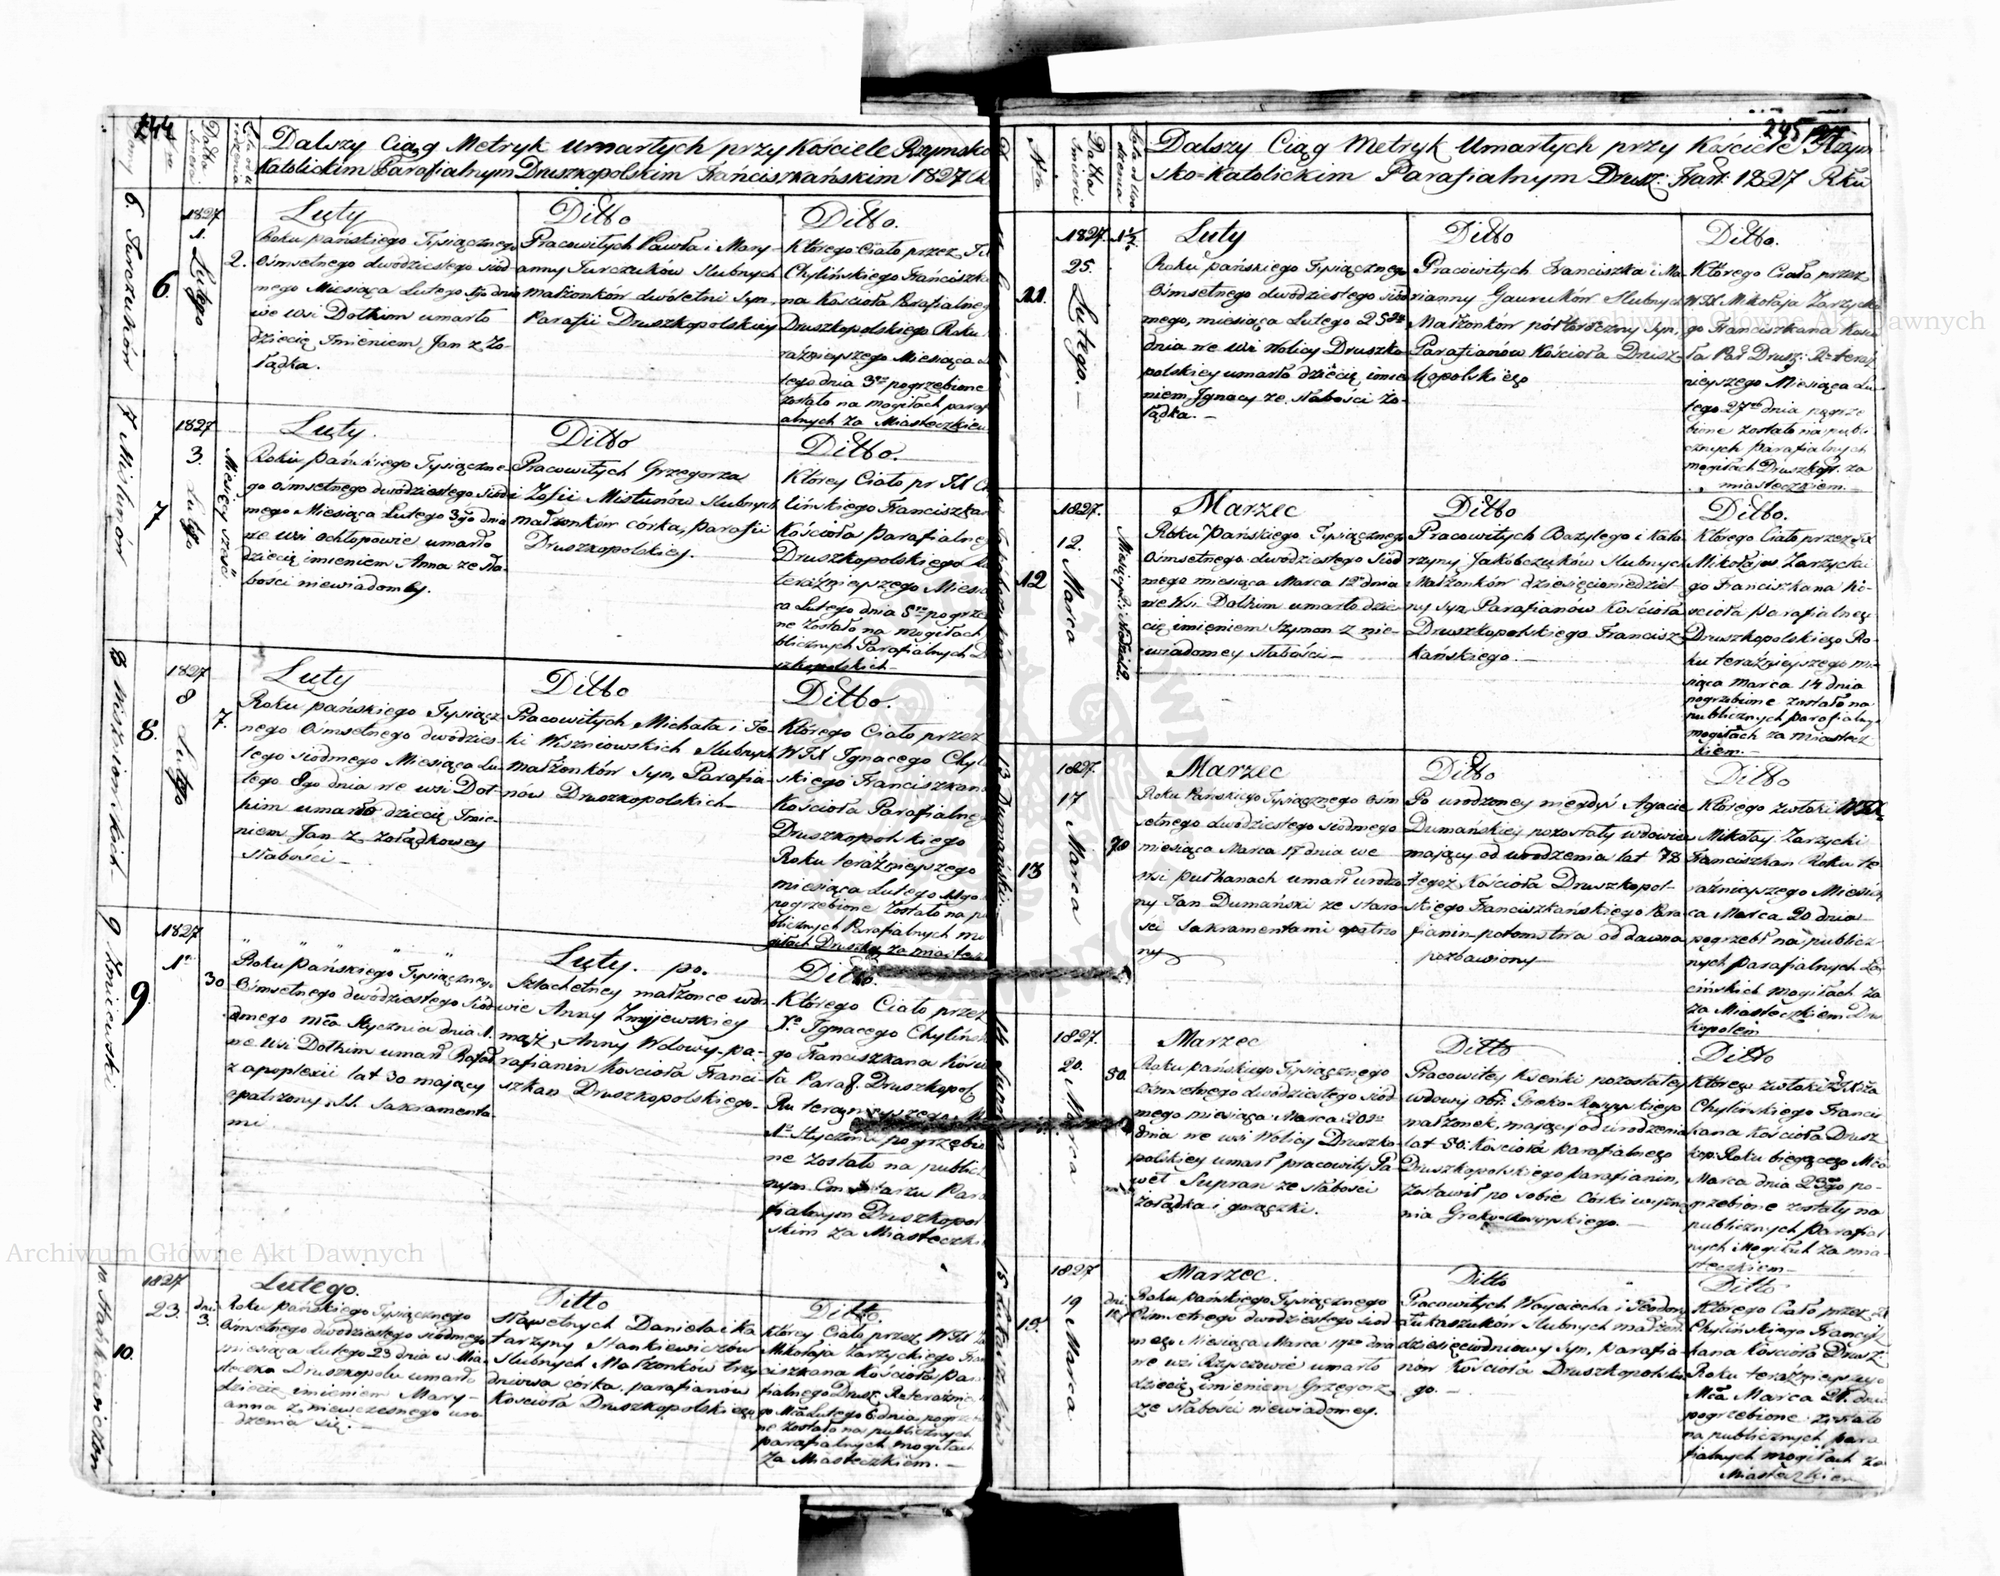 244
Dalszy Ciąg Metryk umarłych przy Kościele Rzymsko
Katolickim Parafialnym Druszkopolskim Franciszkańskim 1827
6. Turczuków
6.
1827
1. Lutego
2.
Luty
Roku pańskiego Tysiącznego
Ośmsetnego dwódziestego siód-
mego Miesiąca Lutego 1go dnia
we wsi Dolhim umarło
dziecię Imieniem Jan z Żo-
łądka.
Ditto
Pracowitych Pawła i Mary-
anny Turczuków slubnych
małżonków dwóletni syn,
Parafii Druszkopolskiey
Ditto.
Którego Ciało przez
Chylińskiego Franciszka
na Kościoła Parafialneg
Druszkopolskiego Roku
raźnieyszego Miesiąca
tego dnia 3go pogrzebione
zostało na mogiłach paraf
alnych za Miasteczkiem
7 Mislunów
7
1827
3. Lutego
Miesięcy sześć
Luty.
Roku pańskiego Tysiączne-
go ośmsetnego dwódziestego siód
mego Miesiąca Lutego 3go dnia
we wsi Ochłopowie umarło
dziecię imieniem Anna ze sła-
bości niewiadomey.
Ditto
Pracowitych Grzegorza
i Zofii Mislunów slubnych
małżonków córka, parafii
Druszkopolskiey.
Ditto.
Którey Ciało pr
lińskiego Franciszkan
Kościoła parafialneg
Druszkopolskiego
teraźnieyszego Miesią
ca Lutego dnia 5go pogrze
ne zostało na mogiłach
blicznych Parafialnych
szkopolskich.
8 Wiszniowskich
8.
1827
8 Lutego
7.
Luty
Roku pańskiego Tysiącz-
nego Ośmsetnego dwódzies-
tego siódmego Miesiąca Lu-
tego 8go dnia we wsi Doł-
him umarło dziecię Imie-
niem Jan z żołądkowey
słabości
Ditto
Pracowitych Michała i Te-
ki Wiszniowskich slubnych
małżonków syn, Parafia-
nów Druszkopolskich
Ditto.
Którego Ciało przez
Ignacego Chyl
skiego Franciszkana
Kościoła Parafialneg
Druszkopolskiego
Roku teraźnieyszego
miesiąca Lutego
pogrzebione zostało na p
blicznych Parafialnych mo
giłach Druszko za miastecz
9
9
1827
30
Roku Pańskiego Tysiącznego
Ośmsetnego dwódziestego siód
dmego mca Stycznia dnia 1.
we wsi Dolhim umarł Rafał
z apoplexii lat 30 mający
opatrzony SS. Sakramenta
mi
Luty. po.
Szlachetney małżonce wdo
wie Anny Zmyjewskiey
mąż, Anny Wdowy pa-
rafianin Kościoła Franci-
szkan Druszkopolskiego.
Ditto.
Którego Ciało przez
Ignacego Chylińsk
go Franciszkana Kośc
ła Paraf. Druszkopol
Stycznia pogrzebio
ne zostało na public
nym Cmentarzu Para
fialnym Druszkopol
skim za Miasteczki
10. Stankiewiczów
10.
1827
23.
dni
3.
Lutego.
Roku pańskiego Tysiącznego
Ośmsetnego dwódziestego siódmego
miesiąca Lutego 23 dnia w Mia-
steczku Druszkopolu umarło
dziecię imieniem Mary-
anna z niewczesnego uro-
dzenia się.
Ditto
Sławetnych Daniela i Ka
tarzyny Stankiewiczów
slubnych Małżonków trzy
dniowa córka, parafianów
Kościoła Druszkopolskiego
Ditto.
Którey Ciało przez
Mikołaja Zarzyckiego Fran
ciszkana Kościoła par
fialnego Drusz:
ne zostało na publicznych
parafialnych mogiłach
za Miasteczkiem.
245
Nro
Datta Smierci
Dalszy Ciąg Metryk Umarłych przy Kościele Rzym
sko=Katolickim Parafialnym Drusz: Fran: 1827 Rku
11.
1827.
25. Lutego.
1½.
Luty
Roku pańskiego Tysiącznego
Ośmsetnego dwódziestego siód
mego, miesiąca Lutego 25go
dnia we wsi Wolicy Druszko
polskiey umarło dziecię imie
niem Ignacy ze słabości Żo-
łądka.
Ditto
Pracowitych Franciszka i Ma
rianny Gauruków slubnych
Małżonków półtoroczny syn,
Parafianów Kościoła Drusz-
kopolskiego
Ditto.
Którego Ciało przez
Mikołaja Zarzyckie
go Franciszkana Kościo
ła Par Drusz: Rr teraź
nieyszego Miesiąca Lu
tego 27go dnia pogrze
bione zostało na publi
cznych parafialnych
mogiłach Druszkopl. za
miasteczkiem.
12
1827.
12. Marca
Marzec
Roku Pańskiego Tysiącznego
Ośmsetnego dwódziestego Siód
mego miesiąca Marca 12go dnia
we Wsi Dolhim umarło dzie-
cię imieniem Szymon z nie-
wiadomey słabości
Ditto
Pracowitych Bazylego i Kata-
rzyny Jakóbczuków slubnych
Małżonków dziesięcioniedziel
ny syn Parafianów Kościoła
Druszkopolskiego Francisz-
kańskiego.
Ditto.
Którego Ciało przez
Mikołaja Zarzyckie
go Franciszkana Ko-
ścioła parafialneg
Druszkopolskiego Ro-
ku teraźnieyszego mie
siąca Marca 14 dnia
pogrzebione zostało na
publicznych parafialny
mogiłach za miastecz
kiem.
13 Dumański
13
1827.
17 Marca
78
Marzec
Roku Pańskiego Tysiącznego Ośm
setnego dwódziestego siódmego
miesiąca Marca 17 dnia we
wsi Pułhanach umarł urodzo
ny Jan Dumański ze staro-
ści Sakramentami opatrzo
ny
Ditto
Po urodzoney niegdyś Agacie
Dumańskiey pozostały wdowiec
mający od urodzenia lat 78
tegoż Kościoła Druszkopol-
skiego Franciszkańskiego Para
fianin potomstwa od dawna
pozbawiony
Ditto
Którego zwłoki
Mikołay Zarzycki
Franciszkan Roku te
raźnieyszego Miesią
ca Marca 20 dnia
pogrzebł na publicz
nych parafialnych Ła
cińskich mogiłach za
za Miasteczkiem Dru
kopolem
14 Supran
1827.
20. Marca
80.
Marzec
Roku pańskiego Tysiącznego
Ośmsetnego dwódziestego siód
mego miesiąca Marca 20go
dnia we wsi Wolicy Druszko
polskiey umarł pracowity Pa
weł Supran ze słabości
żołądka i gorączki.
Ditto
Pracowitey Ksenki pozostałey
wdowy obr. Greko-Rossyyskiego
małżonek, mający od urodzenia
lat 80. Kościoła parafialnego
Druszkopolskiego parafianin,
zostawił po sobie Córki wyzna
nia Greko-Rossyyskiego.
Ditto
Którego zwłoki
Chylińskiego Francis
kana Kościoła Drusz
kop: Roku bieżącego Mca
Marca dnia 23go po-
grzebione zostały na
publicznych parafial
nych Mogiłach za mia-
steczkiem.
15.
1827
19 Marca
dni
Marzec.
Roku pańskiego Tysiącznego
Ośmsetnego dwódziestego siód
mego Miesiąca Marca 19go dnia
we wsi Rzyszczowie umarło
dziecię imieniem Grzegorz
ze słabości niewiadomey.
Ditto
Pracowitych Woyciecha i Teodory
Łukaszuków slubnych małżon
dziesięciodniowy syn, parafia-
nów Kościoła Druszkopolskie
go.
Ditto
Którego Ciało przez
Chylińskiego Francis
kana Kościoła Drusz
Roku teraźnieyszego
Mca Marca 21. dnia
pogrzebione zostało
na publicznych para
fialnych mogiłach za
Miasteczkiem
Archiwum Główne Akt Dawnych
Archiwum Główne Akt Dawnych